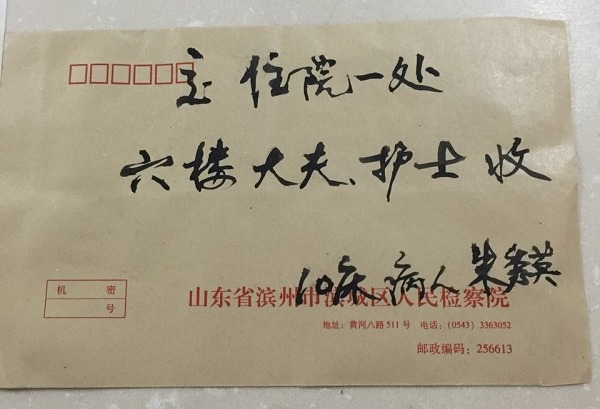 交 住院一处
六楼大夫、护士收
10床 病人 朱秀英
机 密
号
山东省滨州市滨城区人民检察院
地址：黄河八路511号 电话：(0543) 3363052
邮政编码：256613